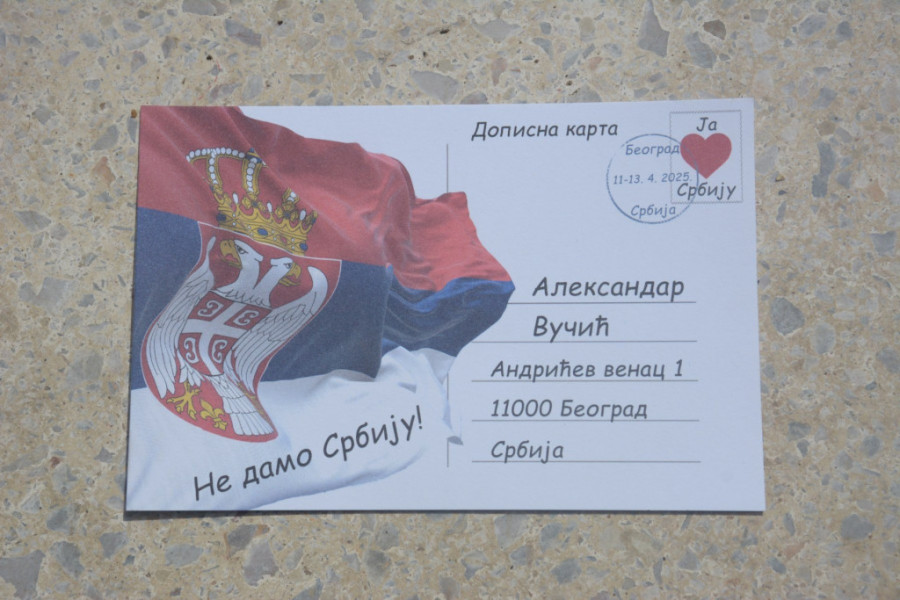 Дописна карта
Ја
Србију
Београд
11-13. 4. 2025.
Србија
Александар
Вучић
Андрићев венац 1
11000 Београд
Србија
Не дамо Србију!